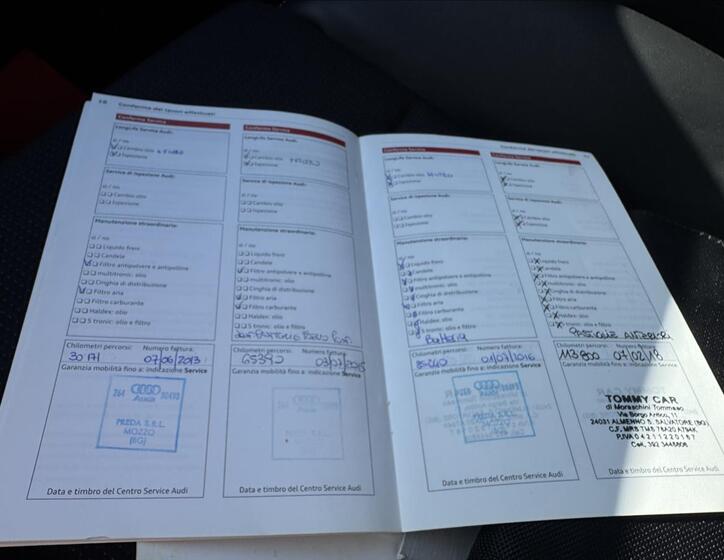 16
Conferma dei lavori effettuati
Conferma Service
LongLife Service Audi:
sì / no
Cambio olio + FILTRO
Ispezione
Service di ispezione Audi:
sì / no
Cambio olio
Ispezione
Manutenzione straordinaria:
sì / no
Liquido freni
Candele
Filtro antipolvere e antipolline
multitronic: olio
Cinghia di distribuzione
Filtro aria
Filtro carburante
Haldex: olio
S tronic: olio e filtro
Chilometri percorsi:
Numero fattura:
07/06/2013
Garanzia mobilità fino a: indicazione Service
264
Audi
Audi
PREDA S.R.L.
MOZZO
(BG)
Data e timbro del Centro Service Audi
Conferma Service
LongLife Service Audi:
sì / no
Cambio olio
Ispezione
Service di ispezione Audi:
sì / no
Cambio olio
Ispezione
Manutenzione straordinaria:
sì / no
Liquido freni
Candele
Filtro antipolvere e antipolline
multitronic: olio
Cinghia di distribuzione
Filtro aria
Filtro carburante
Haldex: olio
S tronic: olio e filtro
Chilometri percorsi:
Numero fattura:
Garanzia mobilità fino a: indicazione Service
Data e timbro del Centro Service Audi
Conferma dei lavori effettuati
Conferma Service
LongLife Service Audi:
sì / no
Cambio olio FILTRO
Ispezione
Service di ispezione Audi:
sì / no
Cambio olio
Ispezione
Manutenzione straordinaria:
sì / no
Liquido freni
Candele
Filtro antipolvere e antipolline
multitronic: olio
Cinghia di distribuzione
Filtro aria
Filtro carburante
Haldex: olio
S tronic: olio e filtro
Batteria
Chilometri percorsi:
Numero fattura:
Garanzia mobilità fino a: indicazione Service
Data e timbro del Centro Service Audi
Conferma Service
LongLife Service Audi:
sì / no
Cambio olio
Ispezione
Service di ispezione Audi:
sì / no
Cambio olio
Ispezione
Manutenzione straordinaria:
sì / no
Liquido freni
Candele
Filtro antipolvere e antipolline
multitronic: olio
Cinghia di distribuzione
Filtro aria
Filtro carburante
Haldex: olio
S tronic: olio e filtro
PASTIGLIE ANTERIORI
Chilometri percorsi:
Numero fattura:
113800
07/02/18
Garanzia mobilità fino a: indicazione Service
TOMMY CAR
di Moraschini Tommaso
Via Borgo Antico, 11
24031 ALMENNO S. SALVATORE (BG)
C.F. MRS TMS 76A20 A794K
P.IVA 04211220167
Cell. 392 3445606
Data e timbro del Centro Service Audi